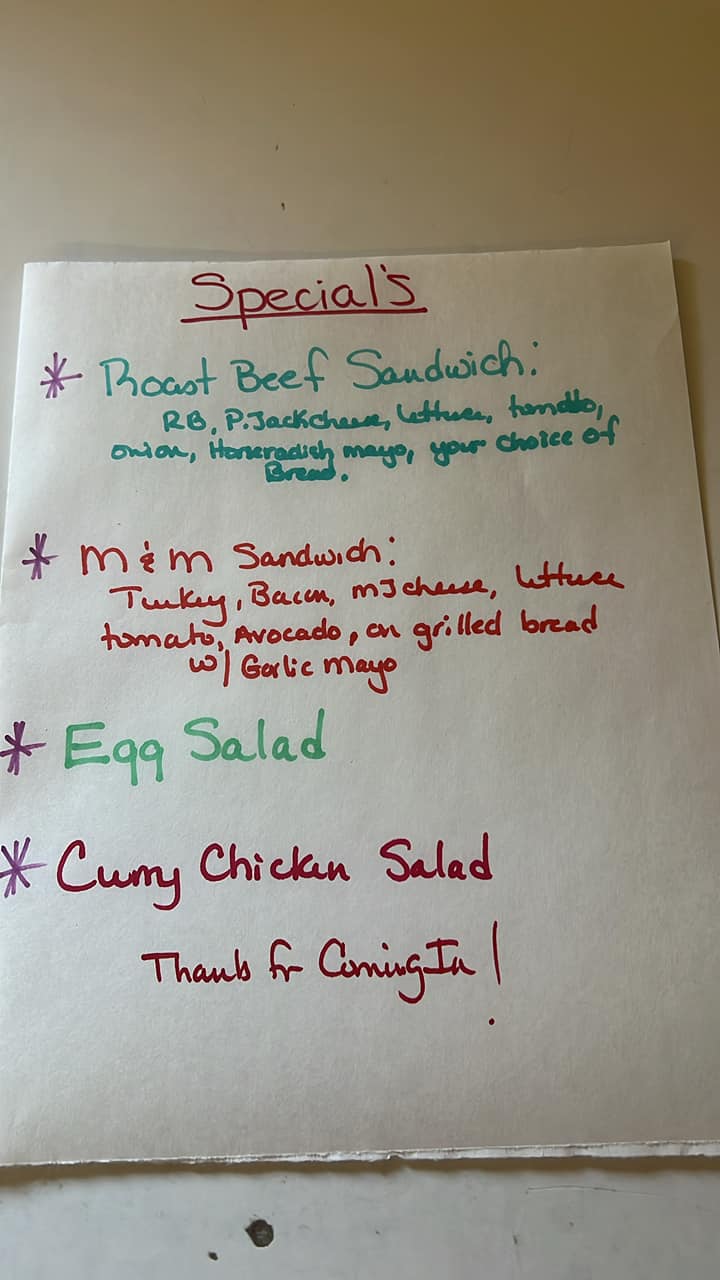 Special's
* Roast Beef Sandwich:
RB, P.Jack cheese, lettuce, tomato,
onion, Horseradish mayo, your choice of
Bread.
* M & M Sandwich:
Turkey, Bacon, MJ cheese, lettuce
tomato, Avocado, on grilled bread
w/ Garlic Mayo
* Egg Salad
* Curry Chicken Salad
Thanks for Coming In!